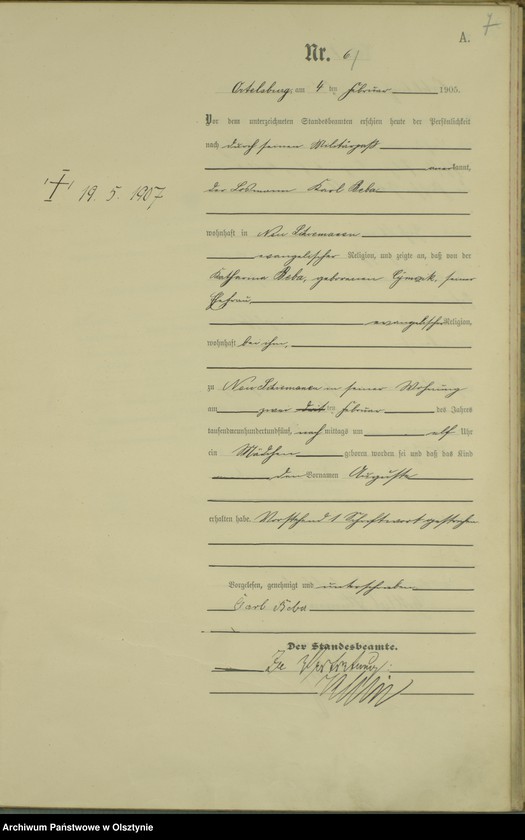 7
A.
Nr. 61
Ortelsburg, am 4 ten Februar 1905.
Vor dem unterzeichneten Standesbeamten erschien heute der Persönlichkeit
nach durch seinen Militärpaß
anerkannt,
der Losmann Karl Beba
wohnhaft in Neu
evangelischer Religion, und zeigte an, daß von der
Katharina Beba, geborenen seiner
Ehefrau,
evangelischer Religion,
wohnhaft bei ihm,
zu Neu in seiner Wohnung
am zwei ten Februar des Jahres
tausendneunhundertundfünf, nach mittags um elf Uhr
ein Mädchen geboren worden sei und daß das Kind
den Vornamen Auguste
erhalten habe. Vorstehend 1 Schriftwort gestrichen
Vorgelesen, genehmigt und unterschrieben
Carl Beba
Der Standesbeamte.
In Vertretung:
† 19. 5. 1907
Archiwum Państwowe w Olsztynie